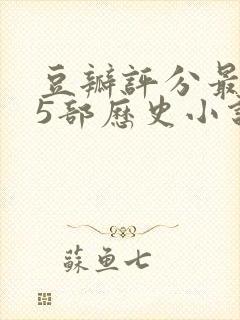 豆瓣評分最
5部歷史小
蘇魚七